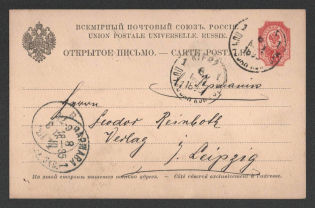 ВСЕМІРНЫЙ ПОЧТОВЫЙ СОЮЗЪ. РОССІЯ.
UNION POSTALE UNIVERSELLE. RUSSIE.
ОТКРЫТОЕ ПИСЬМО. — CARTE POSTALE.
Германія
Herrn
Feodor Reinboth
Verlag
j. Leipzig
ВАРШАВА
На этой сторонѣ пишется только адресъ. — Côté réservé exclusivement à l'adresse.